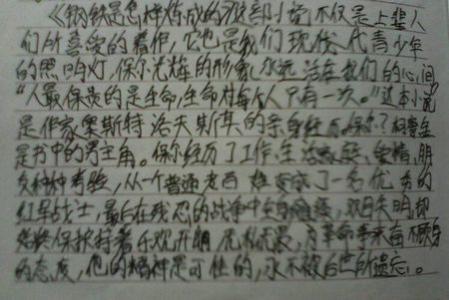 《钢铁是怎样炼成的》这部小说不仅是上辈人
们所喜爱的著作,它也是我们现代一代青少年
的照明灯,保尔光辉的形象永远活在我们的心间
“人最保贵的是生命,生命对每个人只有一次。”这本小说
是作家奥斯特洛夫斯基的亲身经历,保尔?柯察金
是书中的男主角。保尔经历了工作、生活、家庭、爱情、朋
友种种考验,从一个普通 变成了一名优秀的
红军战士,最后在残忍的战争中 双目失明,却
始终保持着乐观开朗 为革命事业奋不顾身
的态度,他的精神是可佳的,永不被后世所遗忘。